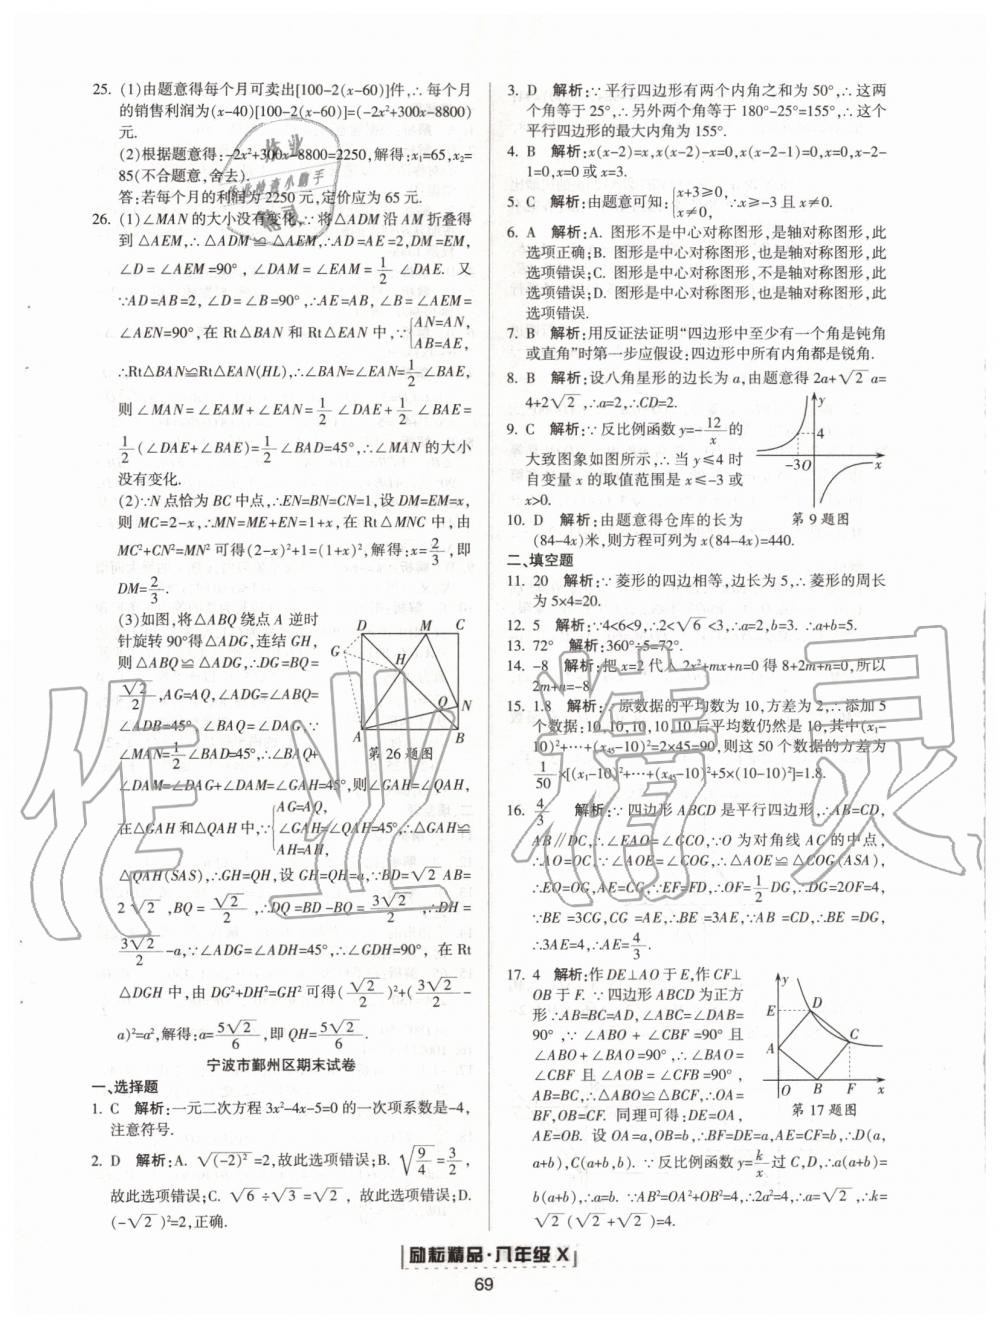 25. (1)由题意得每个月可卖出[100-2(x-60)]件,∴每个月
的销售利润为(x-40)[100-2(x-60)]=(-2x²+300x-8800)
元.
(2)根据题意得:-2x²+300x-8800=2250,解得:x₁=65,x₂=
85(不合题意,舍去).
答:若每个月的利润为2250元,定价应为65元.
26. (1)∠MAN的大小没有变化,∵将△ADM沿AM折叠得
到△AEM,∴△ADM≌△AEM,∴AD=AE=2,DM=EM,
∠D=∠AEM=90°,∠DAM=∠EAM=1/2∠DAE. 又
∵AD=AB=2,∠D=∠B=90°,∴AE=AB,∠B=∠AEM=
∠AEN=90°,在Rt△BAN和Rt△EAN中,∵{AN=AN, AB=AE,
∴Rt△BAN≌Rt△EAN(HL),∴∠BAN=∠EAN=1/2∠BAE,
则∠MAN=∠EAM+∠EAN=1/2∠DAE+1/2∠BAE=
1/2(∠DAE+∠BAE)=1/2∠BAD=45°,∴∠MAN的大小
没有变化.
(2)∵N点恰为BC中点,∴EN=BN=CN=1,设DM=EM=x,
则MC=2-x,∴MN=ME+EN=1+x,在Rt△MNC中,由
MC²+CN²=MN²可得(2-x)²+1=(1+x)²,解得:x=2/3,即
DM=2/3.
(3)如图,将△ABQ绕点A逆时
针旋转90°得△ADG,连结GH,
则△ABQ≌△ADG,∴DG=BQ=
√2/2,AG=AQ,∠ADG=∠ABQ=
∠ADB=45°,∠BAQ=∠DAG,∵
∠MAN=1/2∠BAD=45°,∴∠BAQ+
∠DAM=∠DAG+∠DAM=∠GAH=45°,则∠GAH=∠QAH,
在△GAH和△QAH中,∵{AG=AQ, ∠GAH=∠QAH=45°, AH=AH,∴△GAH≌
△QAH(SAS),∴GH=QH,设GH=QH=a,∵BD=√2AB=
2√2,BQ=√2/2,∴DQ=BD-BQ=3√2/2,∴DH=
3√2/2-a,∵∠ADG=∠ADH=45°,∴∠GDH=90°,在Rt
△DGH中,由DG²+DH²=GH²可得(√2/2)²+(3√2/2-
a)²=a²,解得:a=5√2/6,即QH=5√2/6.
D M C
G H
Q N
A B
第26题图
宁波市鄞州区期末试卷
一、选择题
1. C 解析:一元二次方程3x²-4x-5=0的一次项系数是-4,
注意符号.
2. D 解析:A. √(-2)²=2,故此选项错误;B. √(9/4)=3/2,
故此选项错误;C. √6÷√3=√2,故此选项错误;D.
(-√2)²=2,正确.
3. D 解析:∵平行四边形有两个内角之和为50°,∴这两
个角等于25°,∴另外两个角等于180°-25°=155°,∴这个
平行四边形的最大内角为155°.
4. B 解析:x(x-2)=x,x(x-2)-x=0,x(x-2-1)=0,x-2-
1=0,x=0或x=3.
5. C 解析:由题意可知:{x+3≥0, x≠0, ∴x≥-3且x≠0.
6. A 解析:A. 图形不是中心对称图形,是轴对称图形,此
选项正确;B. 图形是中心对称图形,也是轴对称图形,此
选项错误;C. 图形是中心对称图形,不是轴对称图形,此
选项错误;D. 图形是中心对称图形,也是轴对称图形,此
选项错误.
7. B 解析:用反证法证明“四边形中至少有一个角是钝角
或直角”时第一步应假设:四边形中所有内角都是锐角.
8. B 解析:设八角星形的边长为a,由题意得2a+√2a=
4+2√2,∴a=2,∴CD=2.
9. C 解析:∵反比例函数y=-12/x的
大致图象如图所示,∴当y≤4时
自变量x的取值范围是x≤-3或
x>0.
y
4
-3 O x
第9题图
10. D 解析:由题意得仓库的长为
(84-4x)米,则方程可列为x(84-4x)=440.
二、填空题
11. 20 解析:∵菱形的四边相等,边长为5,∴菱形的周长
为5×4=20.
12. 5 解析:∵4<6<9,∴2<√6<3,∴a=2,b=3. ∴a+b=5.
13. 72° 解析:360°÷5=72°.
14. -8 解析:把x=2代入2x²+mx+n=0得8+2m+n=0,所以
2m+n=-8.
15. 1.8 解析:∵原数据的平均数为10,方差为2,∴添加5
个数据:10,10,10,10,10后平均数仍然是10,其中(x₁-
10)²+…+(x₄₅-10)²=2×45=90,则这50个数据的方差为
1/50×[(x₁-10)²+…+(x₄₅-10)²+5×(10-10)²]=1.8.
16. 4/3 解析:∵四边形ABCD是平行四边形,∴AB=CD,
AB∥DC,∴∠EAO=∠GCO,∵O为对角线AC的中点,
∴AO=OC,∵∠AOE=∠COG,∴△AOE≌△COG(ASA),
∴EO=OG,AE=CG,∵EF=FD,∴OF=1/2DG,∴DG=2OF=4,
∵BE=3CG,CG=AE,∴BE=3AE,∵AB=CD,∴BE=DG,
∴3AE=4,∴AE=4/3.
17. 4 解析:作DE⊥AO于E,作CF⊥
OB于F. ∵四边形ABCD为正方
形∴AB=AD,∠ABC=∠DAB=
90°,∵∠ABO+∠CBF=90°且
∠ABO+∠BAO=90°,∴∠BAO=
∠CBF且∠AOB=∠CFB=90°,
AB=BC,∴△ABO≌△BCF,∴OA=
BF,OB=CF. 同理可得:DE=OA,
AE=OB. 设OA=a,OB=b,∴BF=DE=a,AE=CF=b,∴D(a,
a+b),C(a+b,b). ∵反比例函数y=k/x过C,D,∴a(a+b)=
b(a+b),∴a=b. ∵AB²=OA²+OB²=4,∴2a²=4,∴a=√2,∴k=
√2(√2+√2)=4.
y
E D
C
A
O B F x
第17题图
励耘精品·八年级 X
69
作业精灵